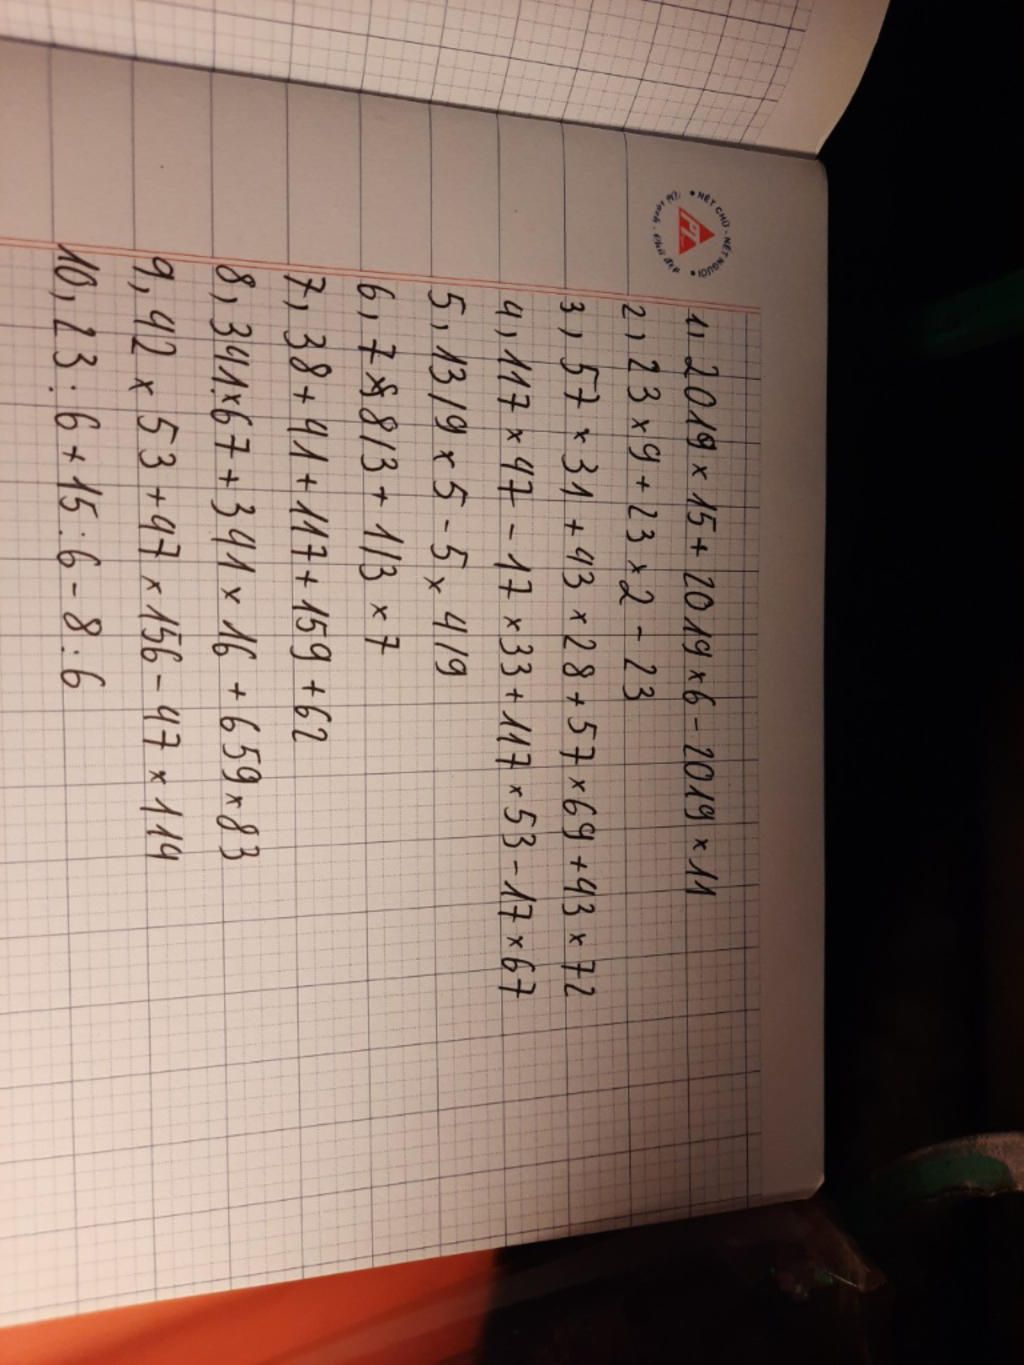 NÉT CHỮ - NẾT NGƯỜI
PL
1, 2019 x 15 + 2019 x 6 - 2019 x 11
2, 23 x 9 + 23 x 2 - 23
3, 57 x 31 + 43 x 28 + 57 x 69 + 43 x 72
4, 117 x 47 - 17 x 33 + 117 x 53 - 17 x 67
5, 13/9 x 5 - 5 x 4/9
6, 7 x 8/3 + 1/3 x 7
7, 38 + 41 + 117 + 159 + 62
8, 341 x 67 + 341 x 16 + 659 x 83
9, 42 x 53 + 47 x 156 - 47 x 114
10, 23 : 6 + 15 : 6 - 8 : 6